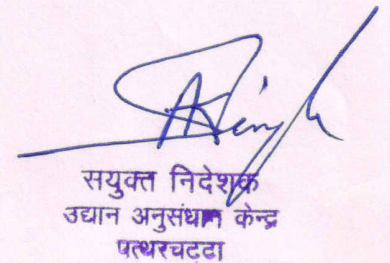 सयुक्त निदेशक
उद्यान अनुसंधान केन्द्र
पत्थरचटटा